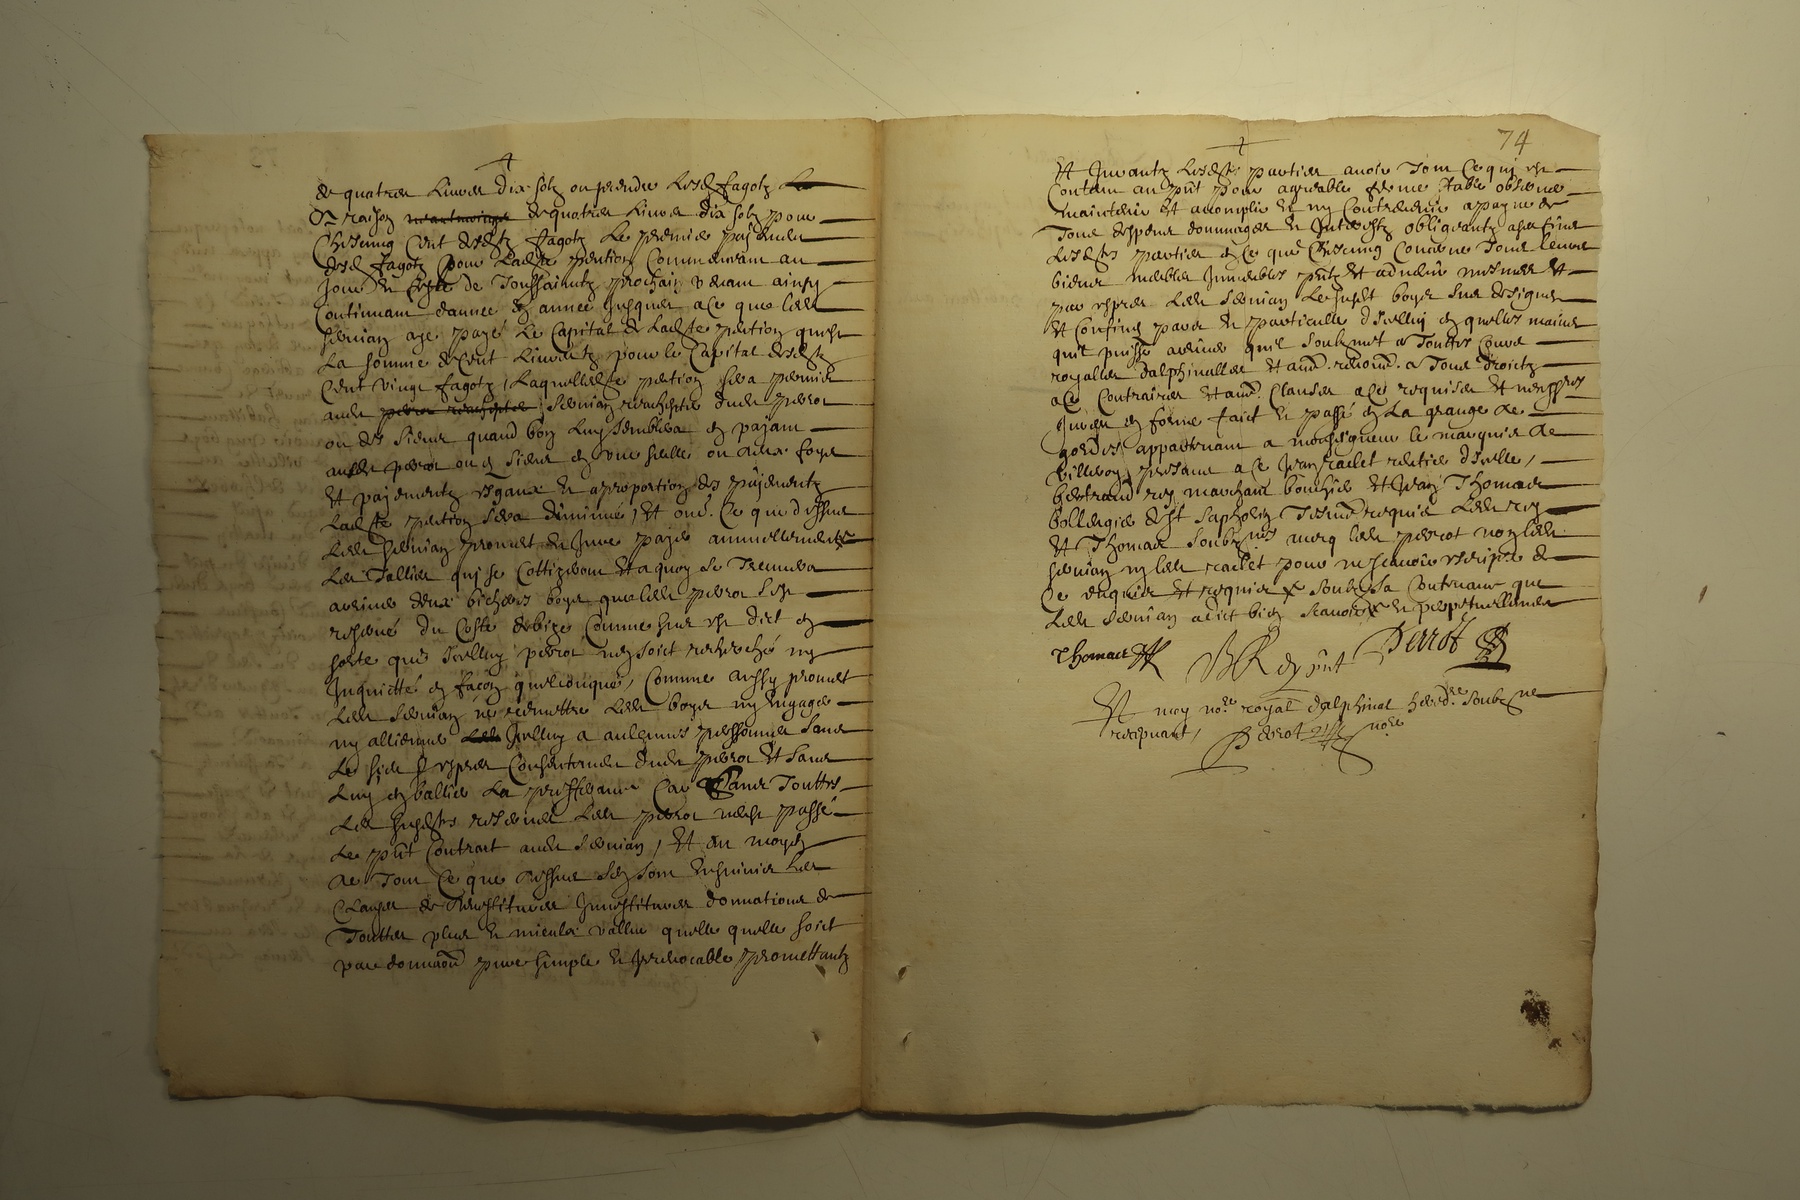 de quatres livres dix solz ou prendre lesd fagotz
a raison de quatres livres dix solz pour
Chescung Cent desdtz fagotz le premier payement
desd fagotz pour ladte pention Commencant au
jour et feste de Toussaintz prochain venant ainsy
Continuant dannee en annee jusques a ce que led
Servian aye payé le Capital de ladte pention quest
La somme de Cent livres pour le Capital desdtz
Cent vingt fagotz Laquelledte pention sera permis
aud Servian rachepter dud perrot
ou des siens quand bon luy semblera en payant
aud perrot ou es siens en une seulle ou deux foys
Et payementz esgaux et a proportion des payementz
Ladte pention sera diminué, Et oud. Ce que dessus
Led Servian promet et jure payer annuellement
Les Tallies qui se Cottizeront Et a quoy se Treuvera
deux bichers boys que led perrot sest
reservé du Costé de bize Comme sus est dict en
sorte que Icelluy perrot nen soict recherché ny
Inquietté en facon quelconque, Comme aussy promet
Led Servian ne remettre led boys ny engager
ny alliener Icelluy a aulcunes personnes sans
Le sceu et expres Consentement dud perrot Et sans
Luy en ballier La prefferance Car sans Touttes
Les susdtes reserves led perrot neust passé
Le pnt Contract aud Servian, Et au moyen
de Tout Ce que dessus sen sont ensuivies les
Clauses de devestitures Investitures donnations de
Touttes plus et mieulx vallue quelle quelle soict
par donnaon pure simple et Irrevocable promettantz
74
Et Jurantz Lesdtes parties avoir Tout Ce qui est
Contenu au pnt pour agreable ferme stable observer
maintenir Et accomplir et ny Contrevenir a payne de
Tous despens dommages et Interestz obligeantz a ces fins
Lesdtes parties en Ce que Chescung Concerne Tous leurs
biens meubles Immeubles pntz Et advenir mesmes Et
par expres led Servian le susdt boys sus designé
Et Confiné par et particulle dicelluy en quelles mains
quil puisse arriver quil soubzmet a Touttes Cours
royalles dalphinalles Et au. renond. a Tous droictz
a Ce Contraires Et au. Clauses a Ce requises Et necessres
en forme faict et passé en La grange de
gordes appartenant a monseigneur le marquis de
Villeroy presans a Ce Jean raclet rentier dicelle,
bertrand rey marchant bouchier Et Jean Thomas
bollengier de St Saphorin Tesmo requis led rey
Et Thomas soubznes avecq led perrot non led
Servian ny led raclet pour ne scavoir escripre de
Ce enquis Et requis soubz La Contenance que
Led Servian a dict bien scavoir et perpetuellement
Thomas BRey pnt Perrot
Et moy nore royal dalphinal hered. soubzne
recepvant, Perrot nore